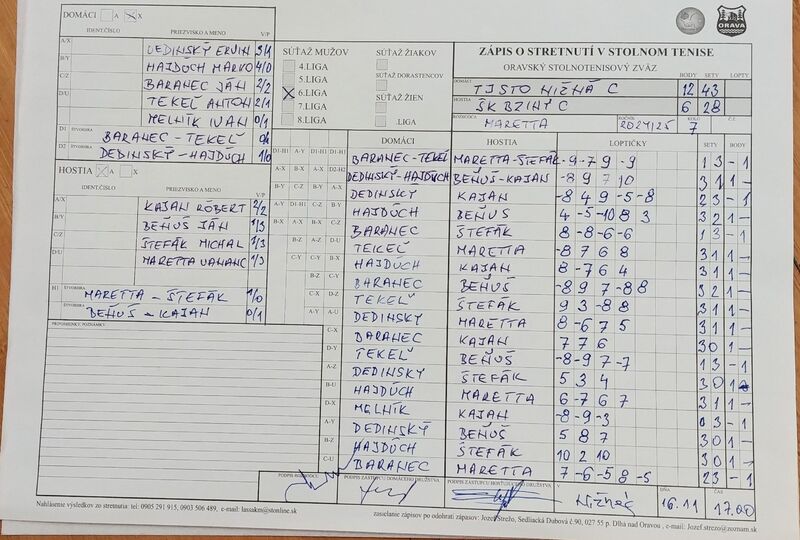 DOMÁCI A X
IDENT.ČÍSLO PRIEZVISKO A MENO V/P
A/X DEDINSKÝ ERVIN 3/1
B/Y HAJDÚCH MARKO 4/0
C/Z BARANEC JÁN 2/2
D/U TEKEĽ ANTON 2/1
MELNÍK IVAN 0/1
D1 ŠTVORHRA BARANEC - TEKEĽ
D2 ŠTVORHRA DEDINSKÝ - HAJDÚCH 1/0
HOSTIA A X
IDENT.ČÍSLO PRIEZVISKO A MENO V/P
A/X KAJAN RÓBERT 2/2
B/Y BEŇUŠ JÁN 1/3
C/Z ŠTEFÁK MICHAL 1/3
D/U MARETTA 1/3
H1 ŠTVORHRA MARETTA - ŠTEFÁK 1/0
ŠTVORHRA BEŇUŠ - KAJAN 0/1
PRIPOMIENKY, POZNÁMKY
SÚŤAŽ MUŽOV
4.LIGA
5.LIGA
6.LIGA
7.LIGA
8.LIGA
SÚŤAŽ ŽIAKOV
SÚŤAŽ DORASTENCOV
SÚŤAŽ ŽIEN
.LIGA
ORAVA
ZÁPIS O STRETNUTÍ V STOLNOM TENISE
ORAVSKÝ STOLNOTENISOVÝ ZVÄZ
DOMÁCI BODY SETY LOPTY
TJ STO NIŽNÁ C 12 43
HOSTIA ŠK BZINY C 6 28
ROZHODCA MARETTA ROČNÍK 2024/25 KOLO 7 Č.Z.
DOMÁCI HOSTIA LOPTIČKY SETY BODY
D1-H1 A-Y D1-H1 D1-H1 BARANEC-TEKEĽ MARETTA-ŠTEFÁK -9 -7 9 -9 1 3 - 1
A-X B-X A-X D2-H2 DEDINSKÝ-HAJDÚCH BEŇUŠ-KAJAN -8 9 7 10 3 1 1 -
B-Y C-Z B-Y A-X DEDINSKÝ KAJAN -8 4 9 -5 -8 2 3 - 1
A-Y D1-H1 C-Z B-Y HAJDÚCH BEŇUŠ 4 -5 -10 8 3 3 2 1 -
B-X A-X B-X C-Z BARANEC ŠTEFÁK 8 -8 -6 -6 1 3 - 1
B-Z A-Z D-U TEKEĽ MARETTA -8 7 6 8 3 1 1 -
C-Y C-Y B-X HAJDÚCH KAJAN 8 -7 6 4 3 1 1 -
B-Z C-Y BARANEC BEŇUŠ -8 9 7 -8 8 3 2 1 -
C-X D-Z TEKEĽ ŠTEFÁK 9 3 -8 8 3 1 1 -
A-Y A-U DEDINSKÝ MARETTA 8 -6 7 5 3 1 1 -
C-X BARANEC KAJAN 7 7 6 3 0 1 -
D-Y TEKEĽ BEŇUŠ -8 -9 7 -7 1 3 - 1
A-Z DEDINSKÝ ŠTEFÁK 5 3 4 3 0 1
B-U HAJDÚCH MARETTA 6 -7 6 7 3 1 1 -
D-X MELNÍK KAJAN -8 -9 -3 0 3 - 1
A-Y DEDINSKÝ BEŇUŠ 5 8 7 3 0 1 -
B-Z HAJDÚCH ŠTEFÁK 10 2 10 3 0 1 -
C-U BARANEC MARETTA 7 -6 -5 8 -5 2 3 - 1
PODPIS ROZHODCU PODPIS ZÁSTUPCU DOMÁCEHO DRUŽSTVA PODPIS ZÁSTUPCU HOSŤUJÚCEHO DRUŽSTVA V Nižnej DŇA 16.11 ČAS 17.00
Nahlásenie výsledkov zo stretnutia: tel: 0905 291 915, 0903 506 489, e-mail: lassakm@stonline.sk
zasielanie zápisov po odohratí zápasov: Jozef Strežo, Sedliacka Dubová č.90, 027 55 p. Dlhá nad Oravou , e-mail: Jozef.strezo@zoznam.sk